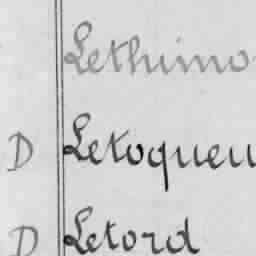 Lethimo
D Letoqueu
D Letord